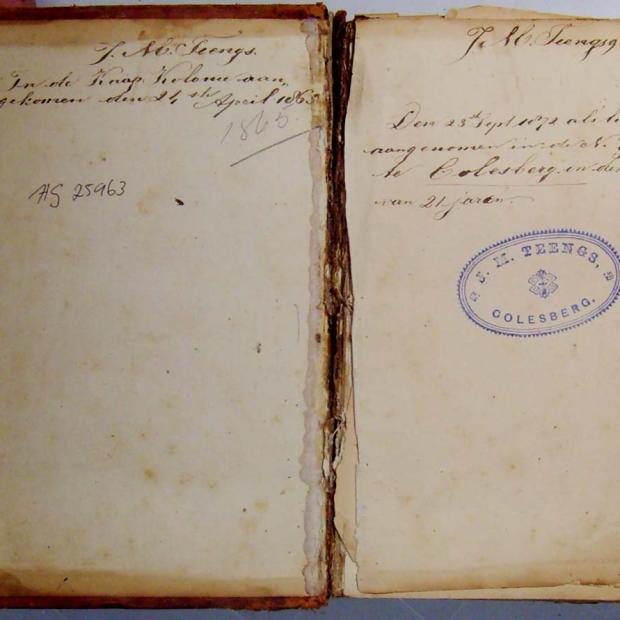 J. M. Teengs.
In de Kaap Kolonie aan,
gekomen den 24ste April 1865
1865.
HG 25963
J. M. Teengs
Den 23st Sept 1872 als
aangenomen in de N.
te Colesberg in den
van 21 jaren.
J. M. TEENGS,
COLESBERG.